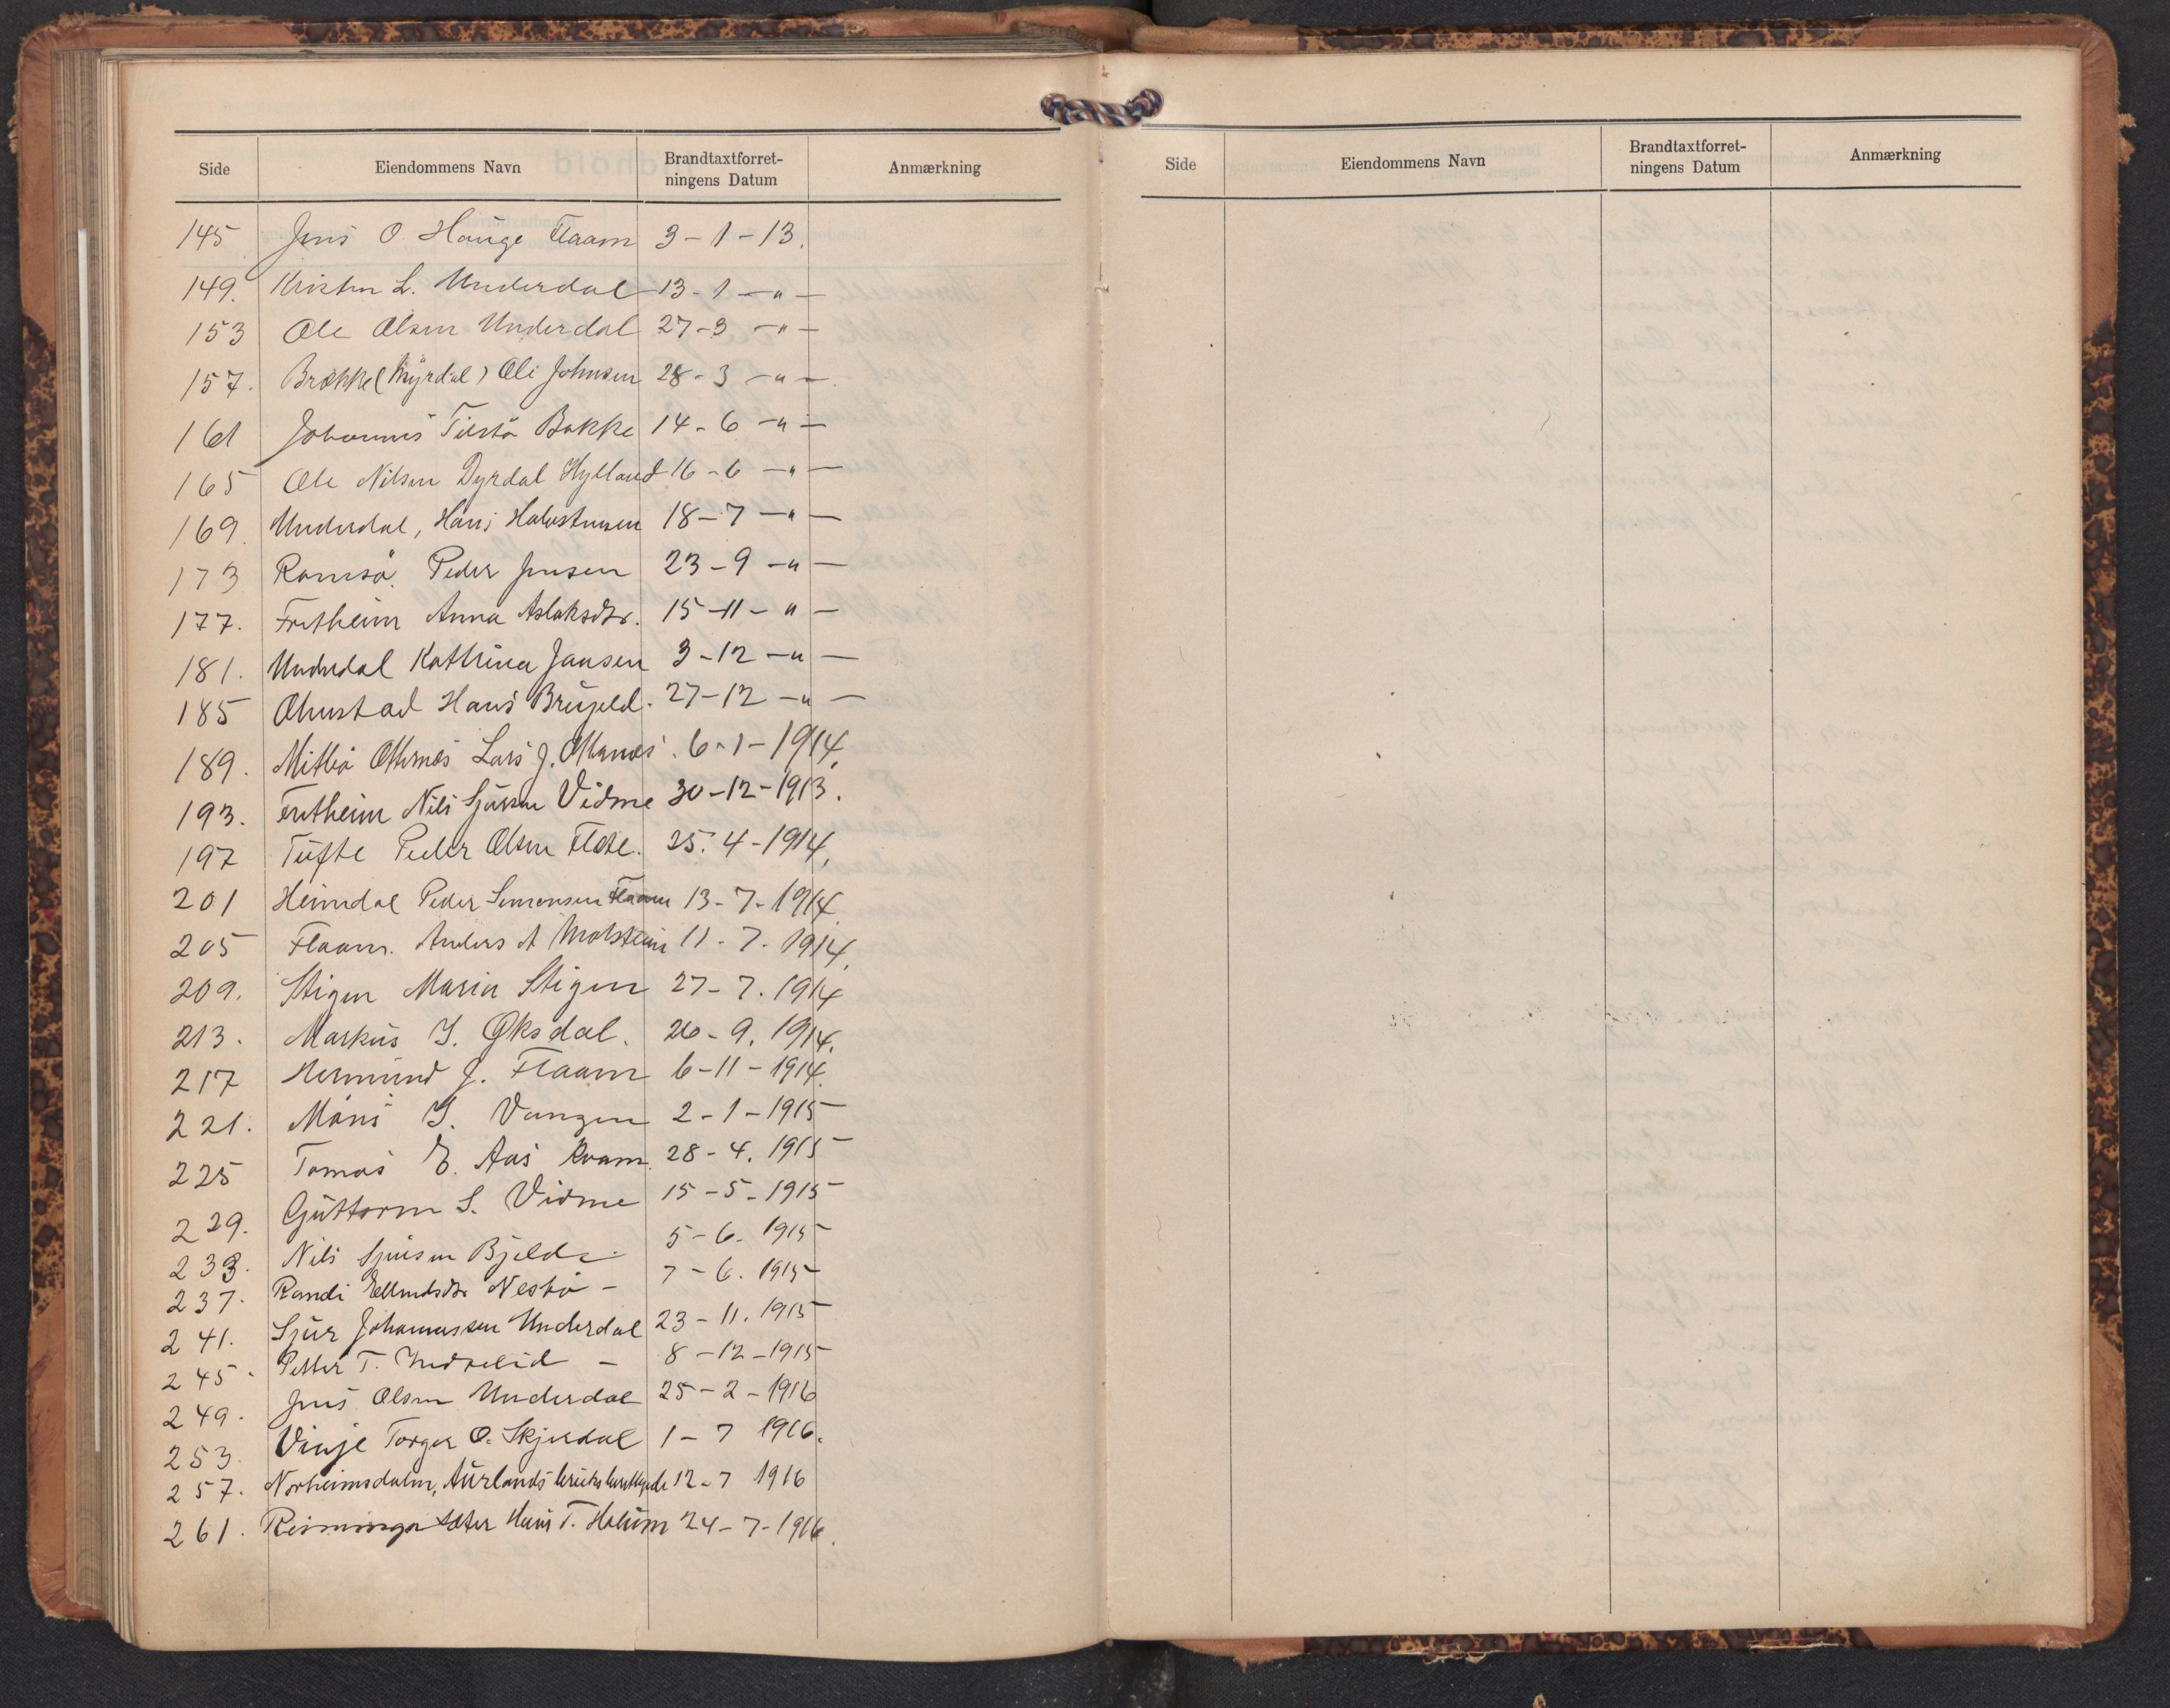 Side Eiendommens Navn Brandtaxtforret-ningens Datum Anmærkning
145 Jens O Hauge Flaam 3-1-13.
149. Kristen L. Underdal 13-1 -"-
153 Ole Olsen Underdal 27-3 -"-
157. Brække (Myrdal) Ole Johnsen 28-3 -"-.
161 Johannes Bakke 14-6 -"-
165 Ole Nilsen Dyrdal Hylland 16-6 -"-
169. Underdal, Hans 18-7 -"-
173 Ramsø. Peder Jensen 23-9 -"-
177. Fretheim Anna Aslaksdtr. 15-11- "-
181. Underdal Kathrina Jansen 3-12 -"-
185 Hans 27-12 -"-
189. Otternes Lars J. Otternes. 6-1-1914.
193. Fretheim Nils Sjursen Vidme 30-12-1913.
197 Tufte Peder Olsen 25.4-1914.
201 Heimdal Peder Simonsen Flaam 13-7-1914.
205 Flaam. Anders A Molstein 11-7.1914.
209. Stigen Maria Stigen 27-7.1914
213. Markus I. 26-9.1914.
217 Hermund J. Flaam 6-11-1914.
221. Måns I. Vangen 2-1-1915
225 Tomas E. Aas Kvam. 28-4.1915
229. Guttorm S. Vidme 15-5-1915
233. Nils Sjursen Bjelde 5-6-1915
237. Randi Ellendsdtr Nesbø - 7-6.1915
241. Sjur Johannessen Underdal 23-11.1915
245. Petter T. Indrelid - 8-12-1915
249. Jens Olsen Underdal 25-2-1916
253. Vinje Torger O. Skjerdal 1-7 1916.
257. Norheimsdalen, Aurlands 12-7 1916
261. sæter Hans T. Holum 24-7-1916.
Side Eiendommens Navn Brandtaxtforret-ningens Datum Anmærkning